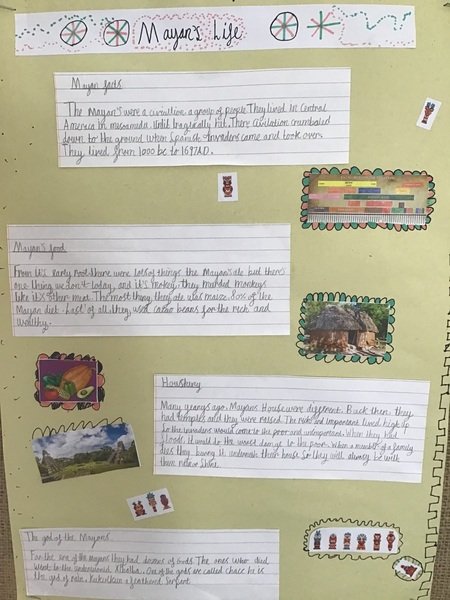 Mayan's Life
Mayan facts
The Mayan's were a civilition a group of people. They lived in Central
America in mesameda. Until tragically hit. There civilation crumbaled
down to the ground when Spanish invaders came and took over.
They lived from 1000 bc to 1697AD.
Mayan's food
From it's early root there were lots of things the Mayan's ate but there
one thing we don't today, and it's mokey, they murded monkeys
like it's other meat. The most thing they ate was maize. 80% of the
Mayan diet. Last of all they used cacao beans for the rich and
wealthy.
Many years ago, Mayans House were different. Back then they
had temples and they were raised. The rich and important lived high up
So the invaders would come to the poor and unimportant. When they had
floods, it would do the worst to the poor. When a member of a family
dies they burry it underneath their house. So they will always be with
them
The god of the Mayans
For the era of the mayans they had dozens of Gods. The ones who died
went to the underworld Xibalba. One of the gods are called chacc he is
the god of rain. Kukulkan a feathered Serpent